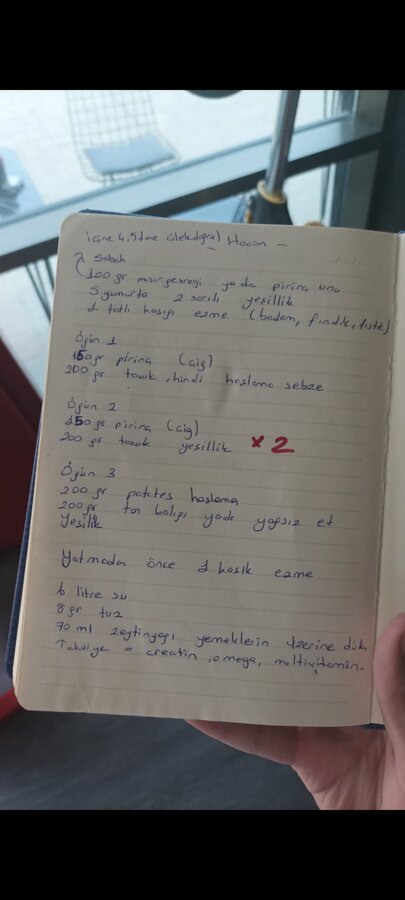 içine 4,5 tane çilek doğra) Hacim -
Sabah
100 gr mısır gevreği ya da pirinç unu
5 yumurta 2 sarılı yeşillik
1 tatlı kaşığı ezme (badem, fındık, fıstık)
Öğün 1
150 gr pirinç (çiğ)
200 gr tavuk, hindi haşlama sebze
Öğün 2
150 gr pirinç (çiğ)
200 gr tavuk yeşillik x2
Öğün 3
200 gr patates haşlama
200 gr ton balığı yada yağsız et
Yeşillik
Yatmadan önce 1 kaşık ezme
6 litre su
8 gr tuz
70 ml zeytinyağı yemeklerin üzerine dök
Takviye = creatin, omega, multivitamin.